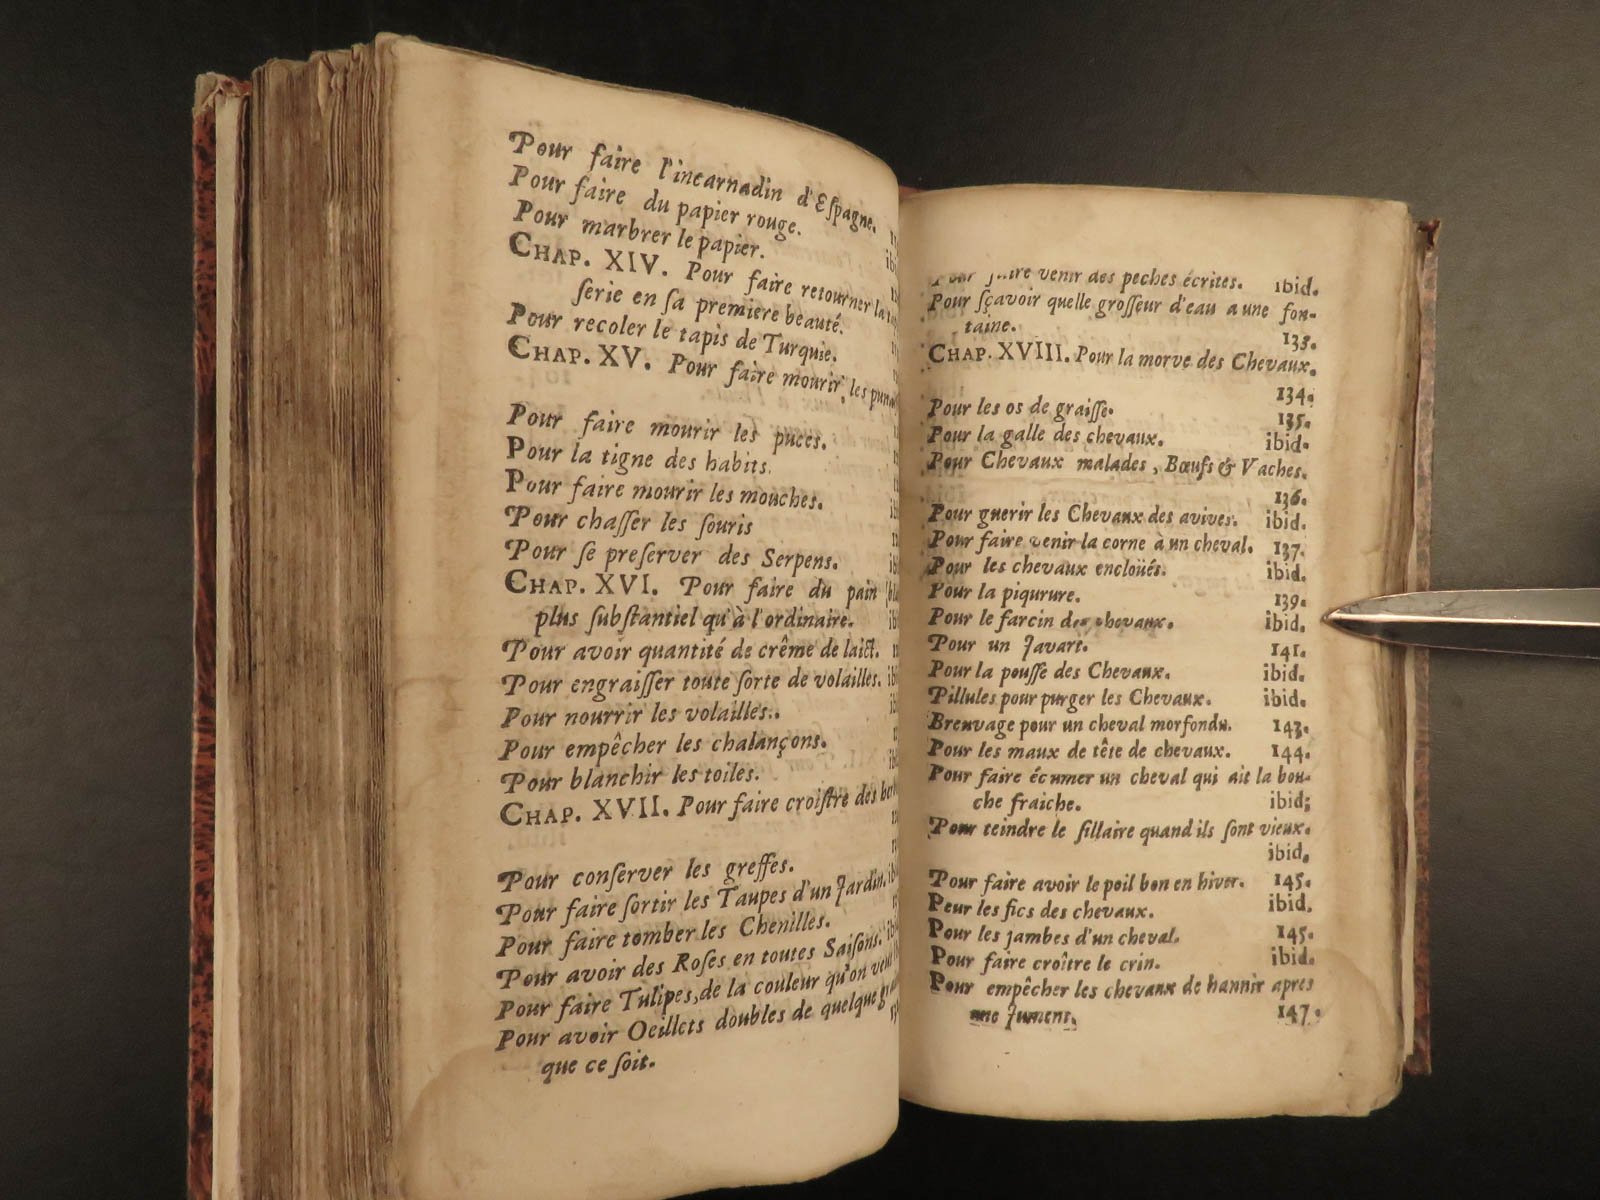 Pour faire l'incarnadin d'Eſpagne.
Pour faire du papier rouge.
Pour marbrer le papier.
CHAP. XIV. Pour faire retourner la
ſerie en ſa premiere beauté.
Pour recoler le tapis de Turquie.
CHAP. XV. Pour faire mourir les
Pour faire mourir les puces.
Pour la tigne des habits.
Pour faire mourir les mouches.
Pour chaſſer les ſouris
Pour ſe preſerver des Serpens.
CHAP. XVI. Pour faire du pain
plus ſubſtantiel qu'à l'ordinaire.
Pour avoir quantité de crême de laict.
Pour engraiſſer toute ſorte de volailles.
Pour nourrir les volailles.
Pour empêcher les chalançons.
Pour blanchir les toiles.
CHAP. XVII. Pour faire croiſtre des
Pour conſerver les greffes.
Pour faire ſortir les Taupes d'un Jardin.
Pour faire tomber les Chenilles.
Pour avoir des Roſes en toutes Saiſons.
Pour faire Tulipes, de la couleur qu'on
Pour avoir Oeillets doubles de quelque
que ce ſoit.
Pour faire venir des peches écrites. ibid.
Pour ſçavoir quelle groſſeur d'eau a une fon-
taine. 133.
CHAP. XVIII. Pour la morve des Chevaux.
134.
Pour les os de graiſſe. 135.
Pour la galle des chevaux. ibid.
Pour Chevaux malades, Bœufs & Vaches.
136.
Pour guerir les Chevaux des avives. ibid.
Pour faire venir la corne à un cheval. 137.
Pour les chevaux encloüés. ibid.
Pour la piqurure. 139.
Pour le farcin des chevaux. ibid.
Pour un Javart. 141.
Pour la pouſſe des Chevaux. ibid.
Pillules pour purger les Chevaux. ibid.
Breuvage pour un cheval morfondu. 143.
Pour les maux de tête de chevaux. 144.
Pour faire écumer un cheval qui ait la bou-
che fraiche. ibid.
Pour teindre le ſillaire quand ils ſont vieux.
ibid.
Pour faire avoir le poil bon en hiver. 145.
Peur les fics des chevaux. ibid.
Pour les jambes d'un cheval. 145.
Pour faire croître le crin. ibid.
Pour empêcher les chevaux de hannir apres
une Jument. 147.